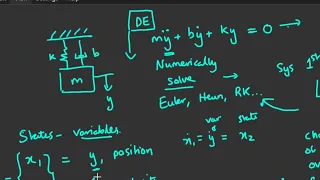 DE
mÿ + bẏ + ky = 0 →
k
b
m
y
Numerically
solve
Euler, Heun, RK...
Sys 1st
States - variables
var state
ẋ₁ = ẏ = x₂
x₁ = y, position